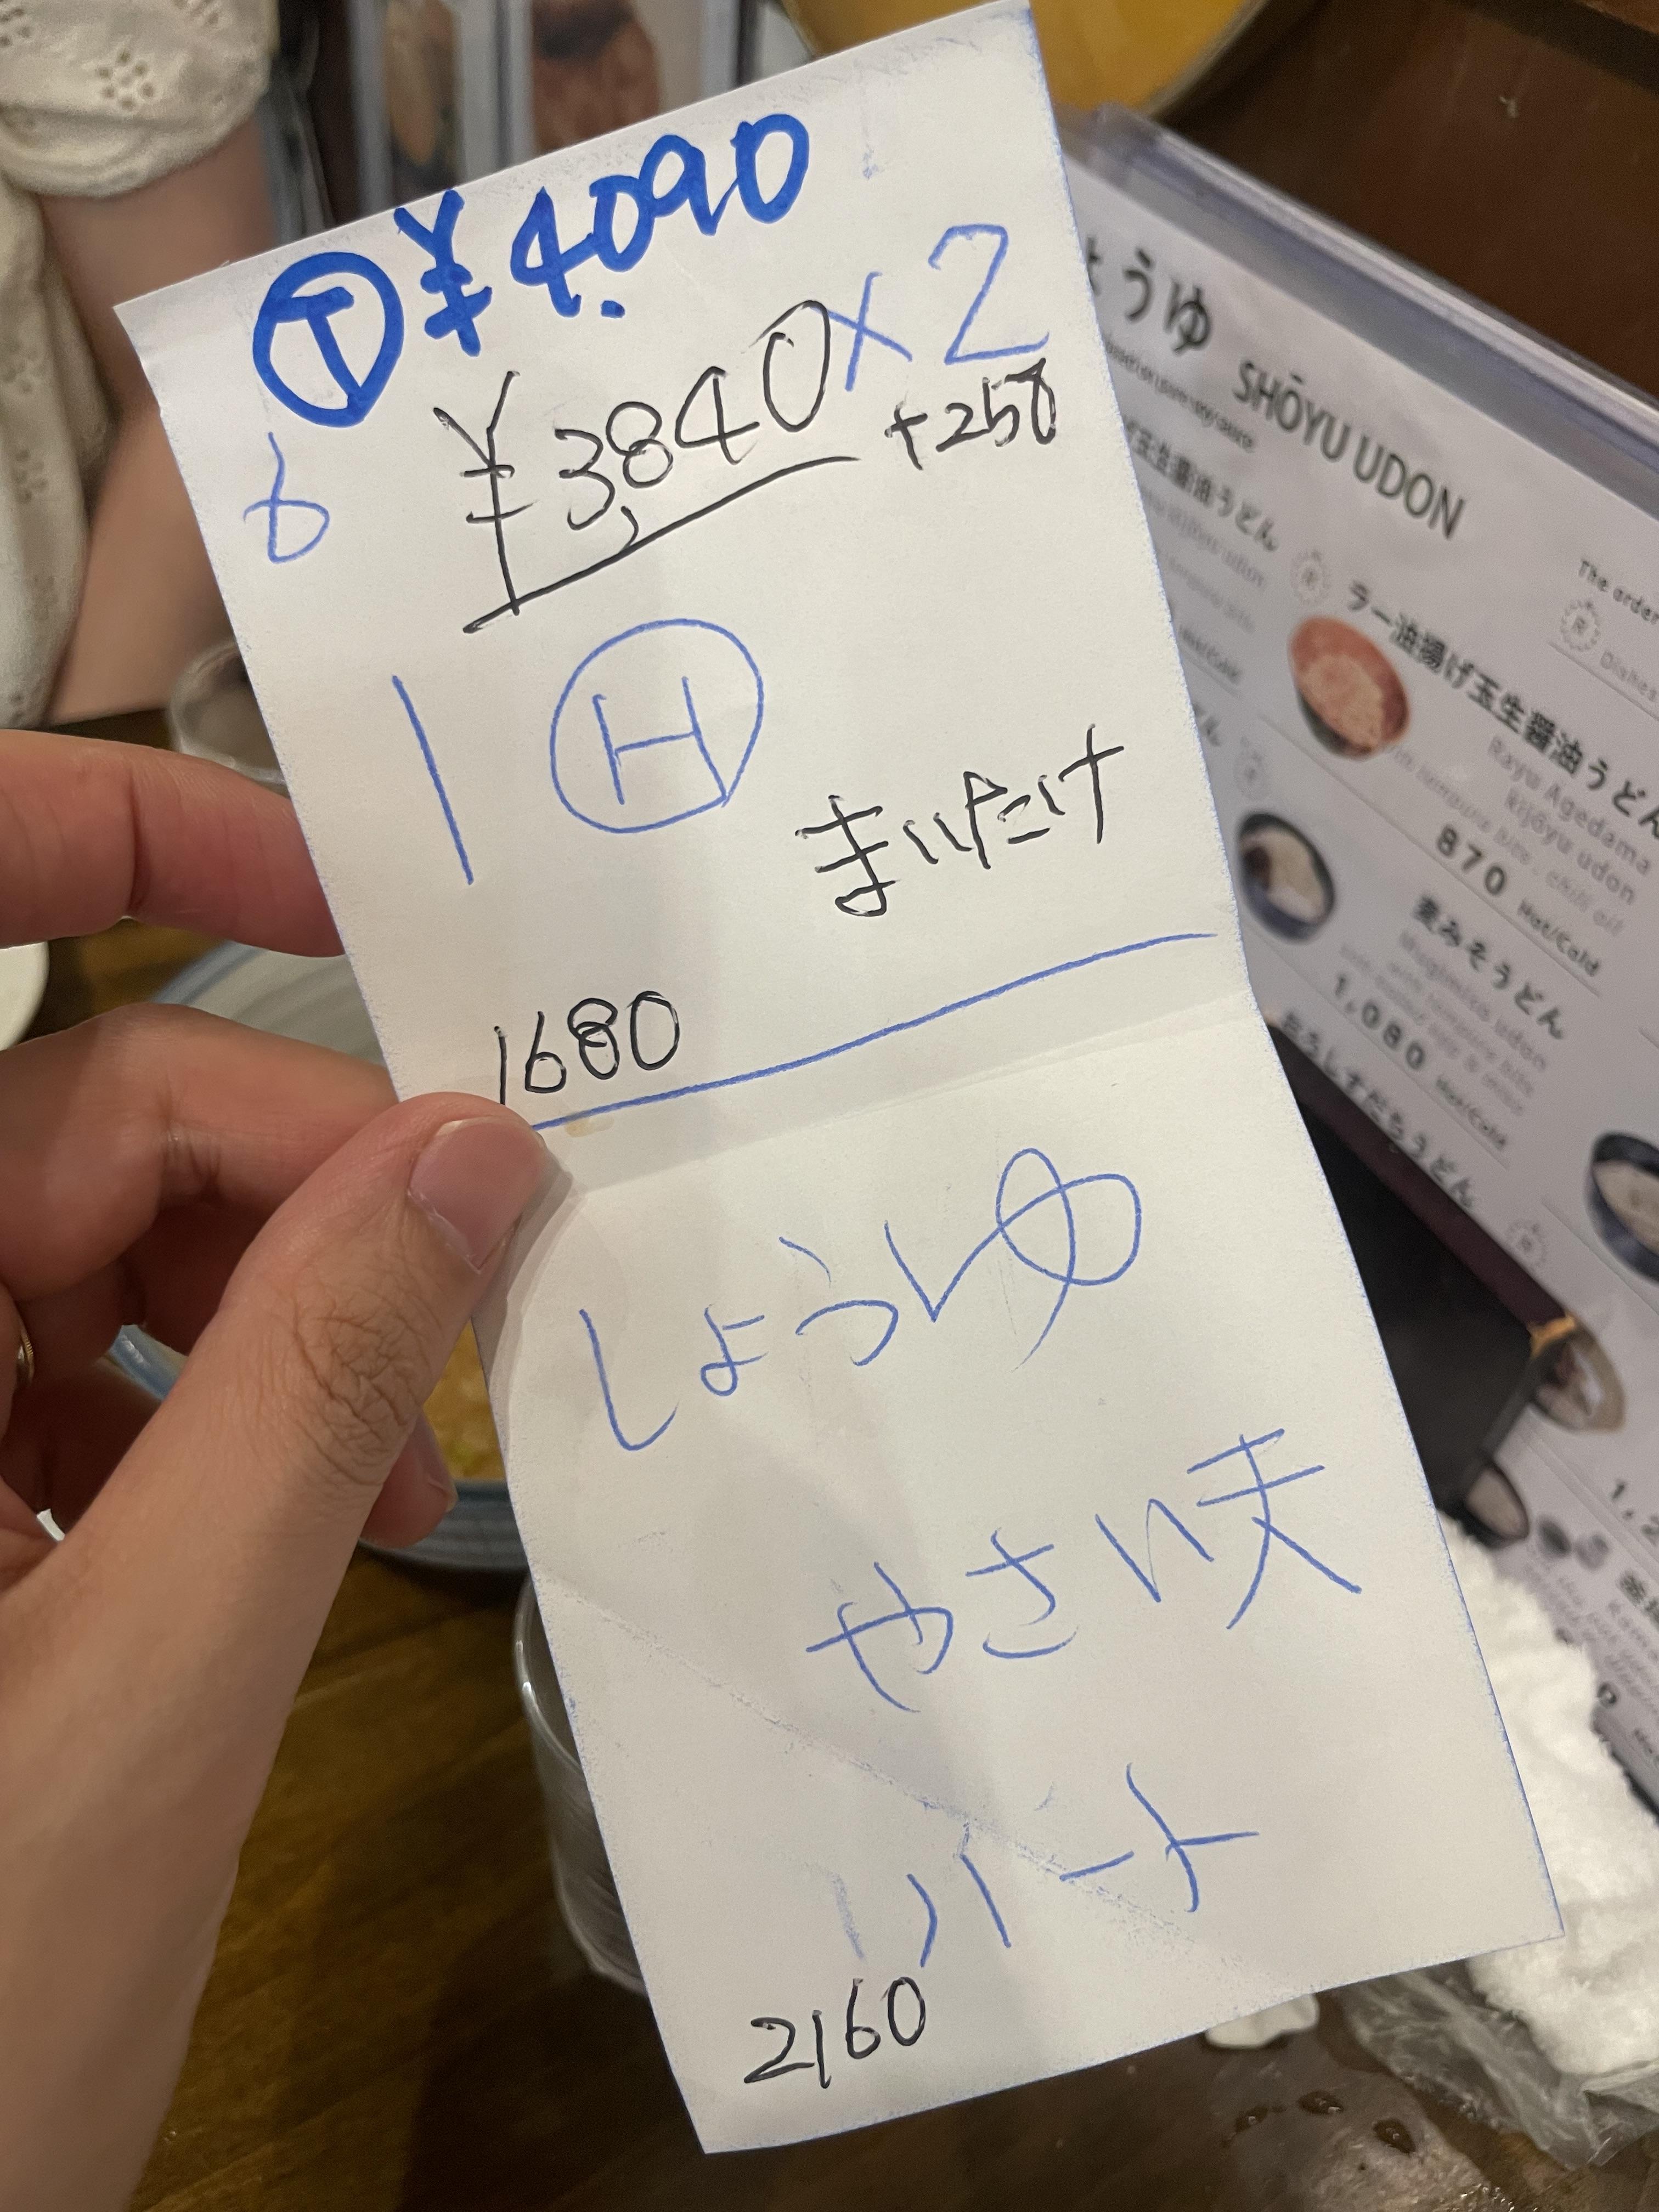 Ⓣ ¥4,090
×2
¥3,840
+250
6
1 Ⓗ
まいたけ
1680
しょうゆ
やさい天
ハート
2160
ょうゆ SHŌYU UDON
玉生醤油うどん
ラー油揚げ玉生醤油うどん
Rayu Agedama
kijōyu udon
870 Hot/Cold
麦みそうどん
Mugimiso udon
1,080 Hot/Cold
おろしすだちうどん
The order
R
Dishes